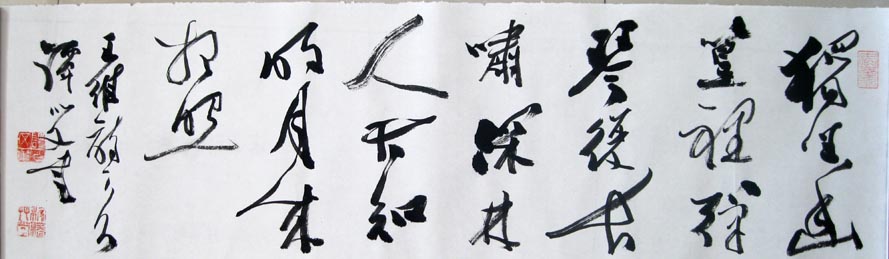 獨坐幽
篁裡彈
琴復長
嘯深林
人不知
明月来
相照
王維詩
譚以文書